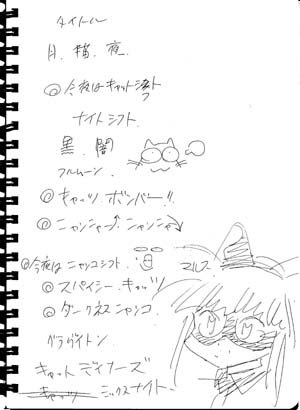 タイトル
月、猫、夜
◎今夜はキャット
ナイトシフト
黒、闇
フルムーン
◎キャッツ、ボンバー!!
◎ニャンニャー↑、ニャンニャ↓
◎今夜はニャンコシフト
マルス
◎スパイシー、キャッツ
◎ダークネスニャンコ
キャットディナーズ
ミックスナイト